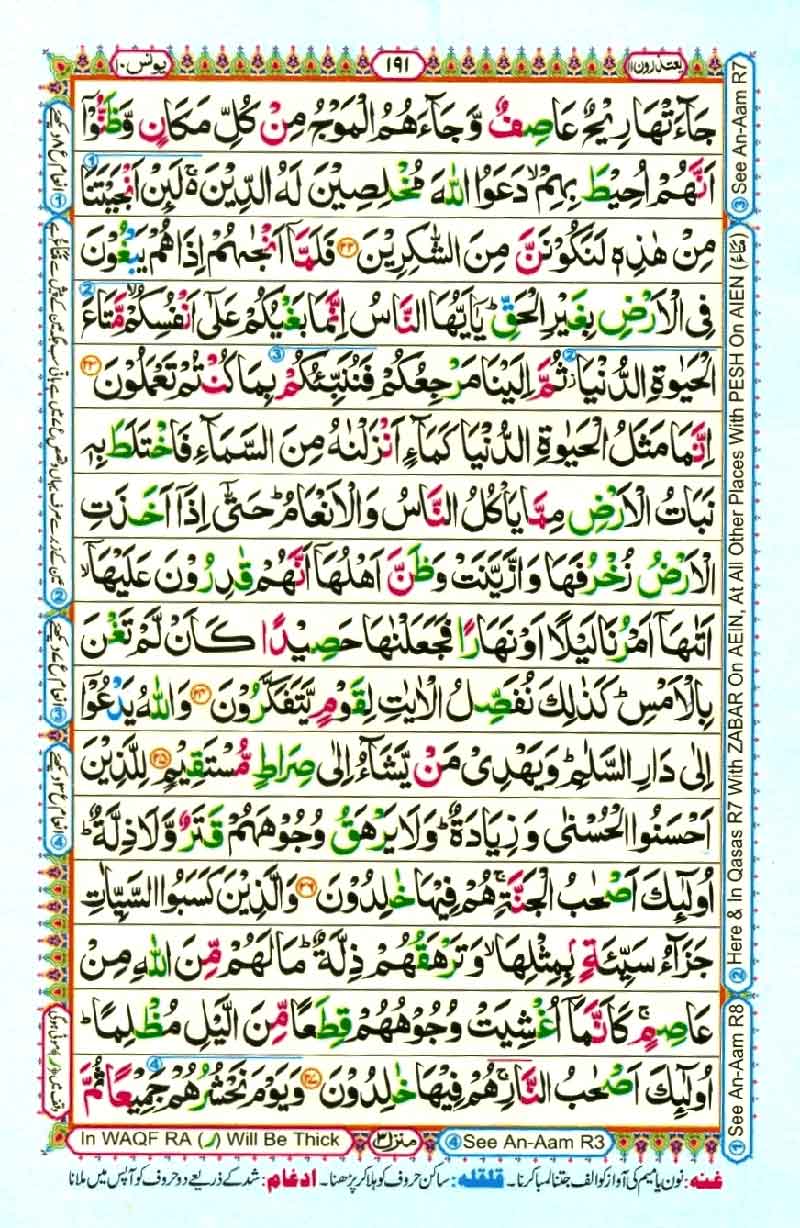 يعتذرون ١١
١٩١
يونس ١٠
جَآءَتْهَا رِيْحٌ عَاصِفٌ وَّ جَآءَهُمُ الْمَوْجُ مِنْ كُلِّ مَكَانٍ وَّظَنُّوْۤا
اَنَّهُمْ اُحِيْطَ بِهِمْ ۙ دَعَوُا اللّٰهَ مُخْلِصِيْنَ لَهُ الدِّيْنَ ۚ۬ لَىِٕنْ اَنْجَيْتَنَا
مِنْ هٰذِهٖ لَنَكُوْنَنَّ مِنَ الشّٰكِرِيْنَ ۝۲۲ فَلَمَّاۤ اَنْجٰىهُمْ اِذَا هُمْ يَبْغُوْنَ
فِى الْاَرْضِ بِغَيْرِ الْحَقِّ ؕ يٰۤاَيُّهَا النَّاسُ اِنَّمَا بَغْيُكُمْ عَلٰۤى اَنْفُسِكُمْ ۙ مَّتَاعَ
الْحَيٰوةِ الدُّنْيَا ؗ ثُمَّ اِلَيْنَا مَرْجِعُكُمْ فَنُنَبِّئُكُمْ بِمَا كُنْتُمْ تَعْمَلُوْنَ ۝۲۳
اِنَّمَا مَثَلُ الْحَيٰوةِ الدُّنْيَا كَمَآءٍ اَنْزَلْنٰهُ مِنَ السَّمَآءِ فَاخْتَلَطَ بِهٖ
نَبَاتُ الْاَرْضِ مِمَّا يَاْكُلُ النَّاسُ وَالْاَنْعَامُ ؕ حَتّٰۤى اِذَاۤ اَخَذَتِ
الْاَرْضُ زُخْرُفَهَا وَازَّيَّنَتْ وَظَنَّ اَهْلُهَاۤ اَنَّهُمْ قٰدِرُوْنَ عَلَيْهَاۤ ۙ
اَتٰىهَاۤ اَمْرُنَا لَيْلًا اَوْ نَهَارًا فَجَعَلْنٰهَا حَصِيْدًا كَاَنْ لَّمْ تَغْنَ
بِالْاَمْسِ ؕ كَذٰلِكَ نُفَصِّلُ الْاٰيٰتِ لِقَوْمٍ يَّتَفَكَّرُوْنَ ۝۲۴ وَاللّٰهُ يَدْعُوْۤا
اِلٰى دَارِ السَّلٰمِ ؕ وَيَهْدِىْ مَنْ يَّشَآءُ اِلٰى صِرَاطٍ مُّسْتَقِيْمٍ ۝۲۵ لِلَّذِيْنَ
اَحْسَنُوا الْحُسْنٰى وَ زِيَادَةٌ ؕ وَلَا يَرْهَقُ وُجُوْهَهُمْ قَتَرٌ وَّلَا ذِلَّةٌ ؕ
اُولٰٓىِٕكَ اَصْحٰبُ الْجَنَّةِ ۚ هُمْ فِيْهَا خٰلِدُوْنَ ۝۲۶ وَالَّذِيْنَ كَسَبُوا السَّيِّاٰتِ
جَزَآءُ سَيِّئَةٍۭ بِمِثْلِهَا ۙ وَتَرْهَقُهُمْ ذِلَّةٌ ؕ مَا لَهُمْ مِّنَ اللّٰهِ مِنْ
عَاصِمٍ ۚ كَاَنَّمَاۤ اُغْشِيَتْ وُجُوْهُهُمْ قِطَعًا مِّنَ الَّيْلِ مُظْلِمًا ؕ
اُولٰٓىِٕكَ اَصْحٰبُ النَّارِ ۚ هُمْ فِيْهَا خٰلِدُوْنَ ۝۲۷ وَيَوْمَ نَحْشُرُهُمْ جَمِيْعًا ثُمَّ
③ See An-Aam R7
② Here & In Qasas R7 With ZABAR On AEIN, At All Other Places With PESH On AIEN (مَتَاعُ)
① See An-Aam R8
① انعام ع ٨ دیکھئے
③ انعام ع ٧ دیکھئے
④ انعام ع ٣ دیکھئے
وقف میں (ر) موٹی ہوگی
In WAQF RA (ر) Will Be Thick
منزل ٣
④ See An-Aam R3
غنه: نون یا میم کی آواز کو الف جتنا لمبا کرنا۔ قلقله: ساکن حروف کو ہلا کر پڑھنا۔ ادغام: شد کے ذریعے دو حروف کو آپس میں ملانا